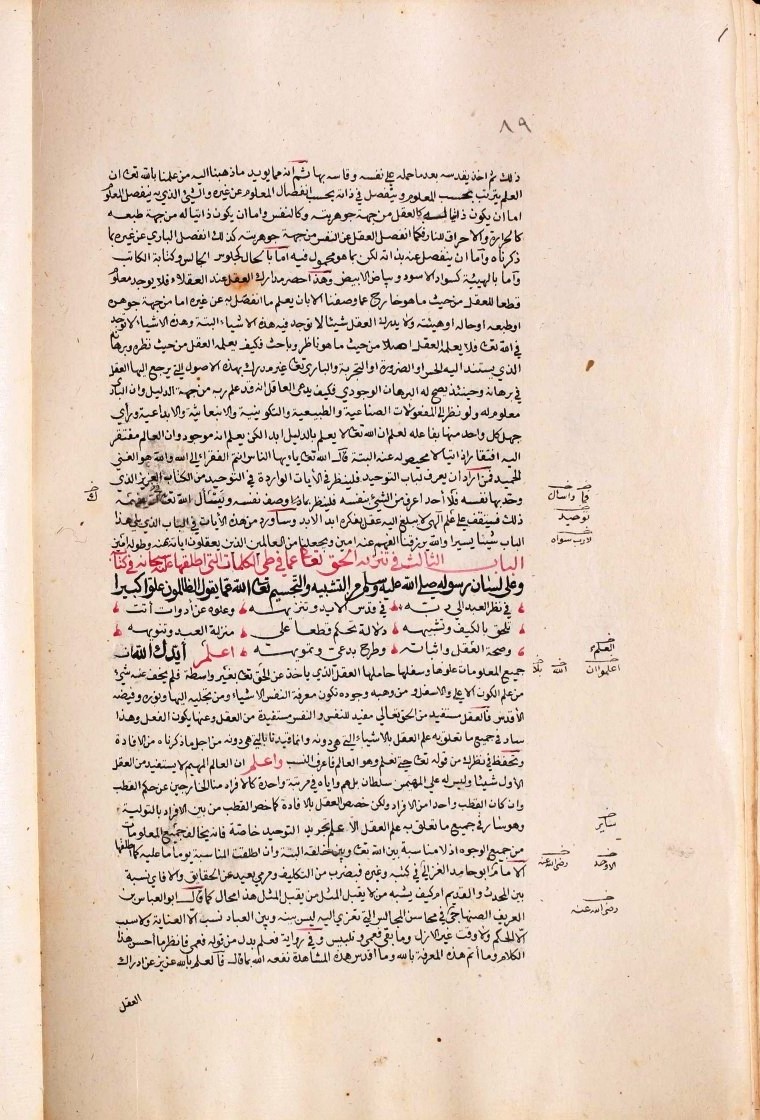 ٨٩
ذلك ثم اخذ يقدسه بعد ما حمله على نفسه وقاسه بها ثم انه مما يويد ما ذهبنا اليه من علمنا بالله تعالى ان
العلم يترتب بحسب المعلوم وينفصل في ذاته بحسب انفصال المعلوم عن غيره والشئ الذي به ينفصل المعلوم
اما ان يكون ذاتيا له كالعقل من جهة جوهريته وكالنفس واما ان يكون ذاتيا له من جهة طبعه
كالحرارة والاحراق للنار فكما انفصل العقل عن النفس من جهة جوهريته كذلك انفصل الباري عن غيره بما
ذكرناه واما ان ينفصل عنه بذاته لكن بما هو محمول فيه اما بالحال كجلوس الجالس وكتابة الكاتب
واما بالهيئة كسواد الاسود وبياض الابيض وهذا حصر مدارك العقل عند العقلاء فلا يوجد معلوم
قطعا للعقل من حيث ما هو خارج عما وصفنا الا بان يعلم ما انفصل به عن غيره اما من جهة جوهره
او طبعه او حاله او هيئته ولا يدرك العقل شيئا لا توجد فيه هذه الاشياء البتة وهذه الاشياء لا توجد
في الله تعالى فلا يعلمه العقل اصلا من حيث ما هو ناظر وباحث فكيف يعلمه العقل من حيث نظره وبرهانه
الذي يستند اليه الحس او الضرورة او التجربة والباري تعالى غير مدرك بهذه الاصول التي يرجع اليها العقل
في برهانه وحينئذ يصح له البرهان الوجودي فكيف يدعي العاقل انه قد علم ربه من جهة الدليل وان الباري
معلوم له ولو نظر الى المفعولات الصناعية والطبيعية والتكوينية والانبعاثية والابداعية وراي
جهل كل واحد منها بفاعله لعلم ان الله تعالى لا يعلم بالدليل ابدا لكن يعلم انه موجود وان العالم مفتقر
اليه افتقارا ذاتيا لا محيص له عنه البتة قال الله تعالى يا يها الناس انتم الفقراء الى الله والله هو الغني
الحميد فمن اراد ان يعرف لباب التوحيد فلينظر في الآيات الواردة في التوحيد من الكتاب العزيز الذي
وحد بها نفسه فلا أحد اعرف من الشئ بنفسه فلينظر بماذا وصف نفسه ويسأل الله تعالى تفهيمه
ذلك فسيقف على علم الهي لا يبلغ اليه عقل بفكره ابد الابد وساورد من هذه الآيات في الباب الذي يلي هذا
الباب شيئا يسيرا والله يرزقنا الفهم عنه امين ويجعلنا من العالمين الذين يعقلون اياته بمنه وطوله امين
الباب الثالث في تنزيه الحق تعالى عما في طي الكلمات التي اطلقها عليه سبحانه في كتابه
وعلى لسان رسوله صلى الله عليه وسلم من التشبيه والتجسيم تعالى الله عما يقول الظالمون علوا كبيرا
في نظر العبد الى ربه في قدس الايد وتنزيهه وعلوه عن ادوات أتت
تلحق بالكيف وتشبيهه دلالة تحكم قطعا على منزلة العبد وتنويهه
وصحة العقل واثباته وطرح بدعي وتمويهه اعلم أيدك الله ان
جميع المعلومات علوها وسفلها حاملها العقل الذي ياخذ عن الحق تعالى بغير واسطة فلم يخف عنه شئ
من علم الكون الاعلى والاسفل ومن وهبه وجوده تكون معرفة النفس الاشياء ومن تجليه اليها ونوره وفيضه
الأقدس فالعقل مستفيد من الحق تعالى مفيد للنفس والنفس مستفيدة من العقل وعنها يكون الفعل وهذا
سار في جميع ما تعلق به علم العقل بالاشياء التي هي دونه وانما قيدنا بالتي هي دونه من اجل ما ذكرناه من الافادة
وتحفظ في نظرك من قوله تعالى حتى نعلم وهو العالم فاعرف النسب واعلم ان العالم المهيم لا يستفيد من العقل
الأول شيئا وليس له على المهيمين سلطان بل هم واياه في مرتبة واحدة كالافراد منا الخارجين عن حكم القطب
وان كان القطب واحدا من الافراد ولكن خصص العقل بالافادة كما خص القطب من بين الافراد بالتولية
وهو سار في جميع ما تعلق به علم العقل الا علم تجريد التوحيد خاصة فانه يخالف جميع المعلومات
من جميع الوجوه اذ لا مناسبة بين الله تعالى وبين خلقه البتة وان اطلقت المناسبة يوما ما عليه كما اطلقها
الامام ابو حامد الغزالي في كتبه وغيره فبضرب من التكلف ومرمى بعيد عن الحقايق والا فاى نسبة
بين المحدث والقديم ام كيف يشبه من لا يقبل المثل من يقبل المثل هذا محال كما قال ابو العباس بن
العريف الصنهاجي في محاسن المجالس التي تعزى اليه ليس بينه وبين العباد نسب الا العناية ولا سبب
الا الحكم ولا وقت غير الازل وما بقى فعمى وتلبيس وفي رواية فعلم بدل من قوله فعمى فانظر ما احسن هذا
الكلام وما أتم هذه المعرفة بالله وما أقدس هذه المشاهدة نفعه الله بما قال فالعلم بالله عزيز عن ادراك
العقل
توحيد
لارب سواه
العلم
رضى الله عنه
رضى الله عنه